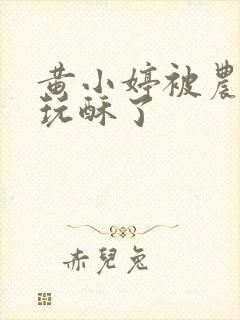 黄小婷被農
玩酥了
赤兒兔